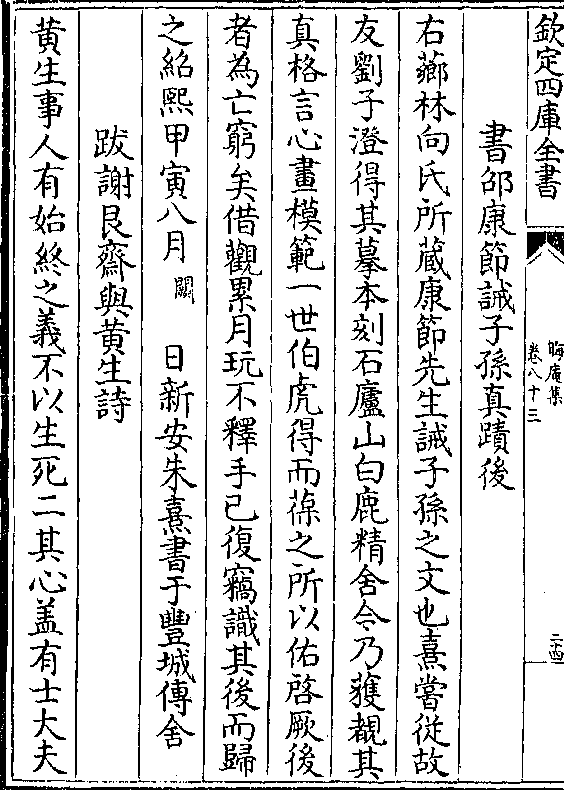 欽定四庫全書
晦庵集
卷八十三
二十四
書邵康節誡子孫真蹟後
右薌林向氏所藏康節先生誡子孫之文也熹嘗從故
友劉子澄得其摹本刻石廬山白鹿精舍今乃獲覩其
真格言心畫模範一世伯虎得而葆之所以佑啓厥後
者為亡窮矣借觀累月玩不釋手已復竊識其後而歸
之紹熙甲寅八月闕日新安朱熹書于豐城傳舍
跋謝艮齋與黄生詩
黄生事人有始終之義不以生死二其心盖有士大夫